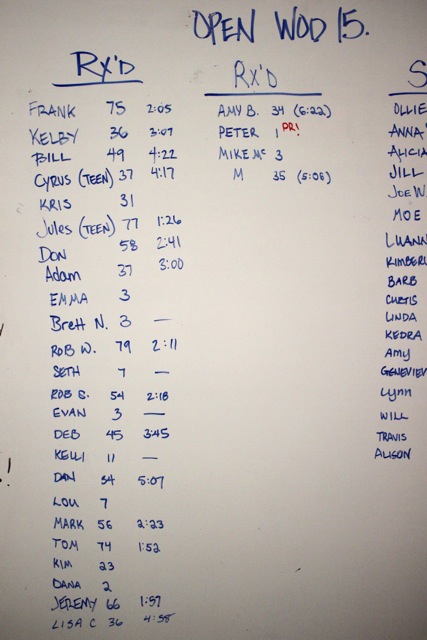 OPEN WOD 15.
RX'D
FRANK 75 2:05
KELBY 36 3:07
BILL 49 4:22
CYRUS (TEEN) 37 4:17
KRIS 31
Jules (TEEN) 77 1:26
DON 58 2:41
Adam 37 3:00
EMMA 3
Brett N. 3 —
ROB W. 79 2:11
SETH 7 —
ROB S. 54 2:18
EVAN 3 —
DEB 45 3:45
KELLI 11 —
DAN 34 5:07
LOU 7
MARK 56 2:23
TOM 74 1:52
KIM 23
DANA 2
JEREMY 66 1:57
LISA C 36 4:58
RX'D
AMY B. 34 (6:22)
PETER 1 PR!
MIKE Mc 3
M 35 (5:08)
S
OLLIE
ANNA
ALICIA
JILL
JOE W
MOE
LUANN
KIMBERL
BARB
CURTIS
LINDA
KEDRA
Amy
GENEVIEV
Lynn
WILL
TRAVIS
ALISON
!